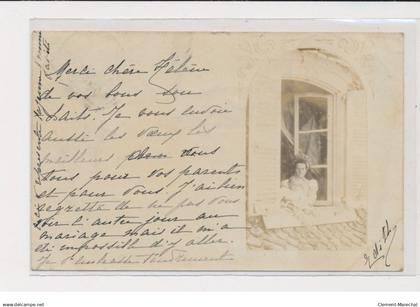 Merci chère Hélène
de vos bons sou
haits. Je vous envoie
aussi les vœux les
meilleurs pour vous
tous pour vos parents
et pour vous. J'ai bien
regretté de ne pas vous
voir l'autre jour au
mariage mais il m'a
été impossible d'y aller.
Je t'embrasse tendrement
Edith
© Clement-Marechal